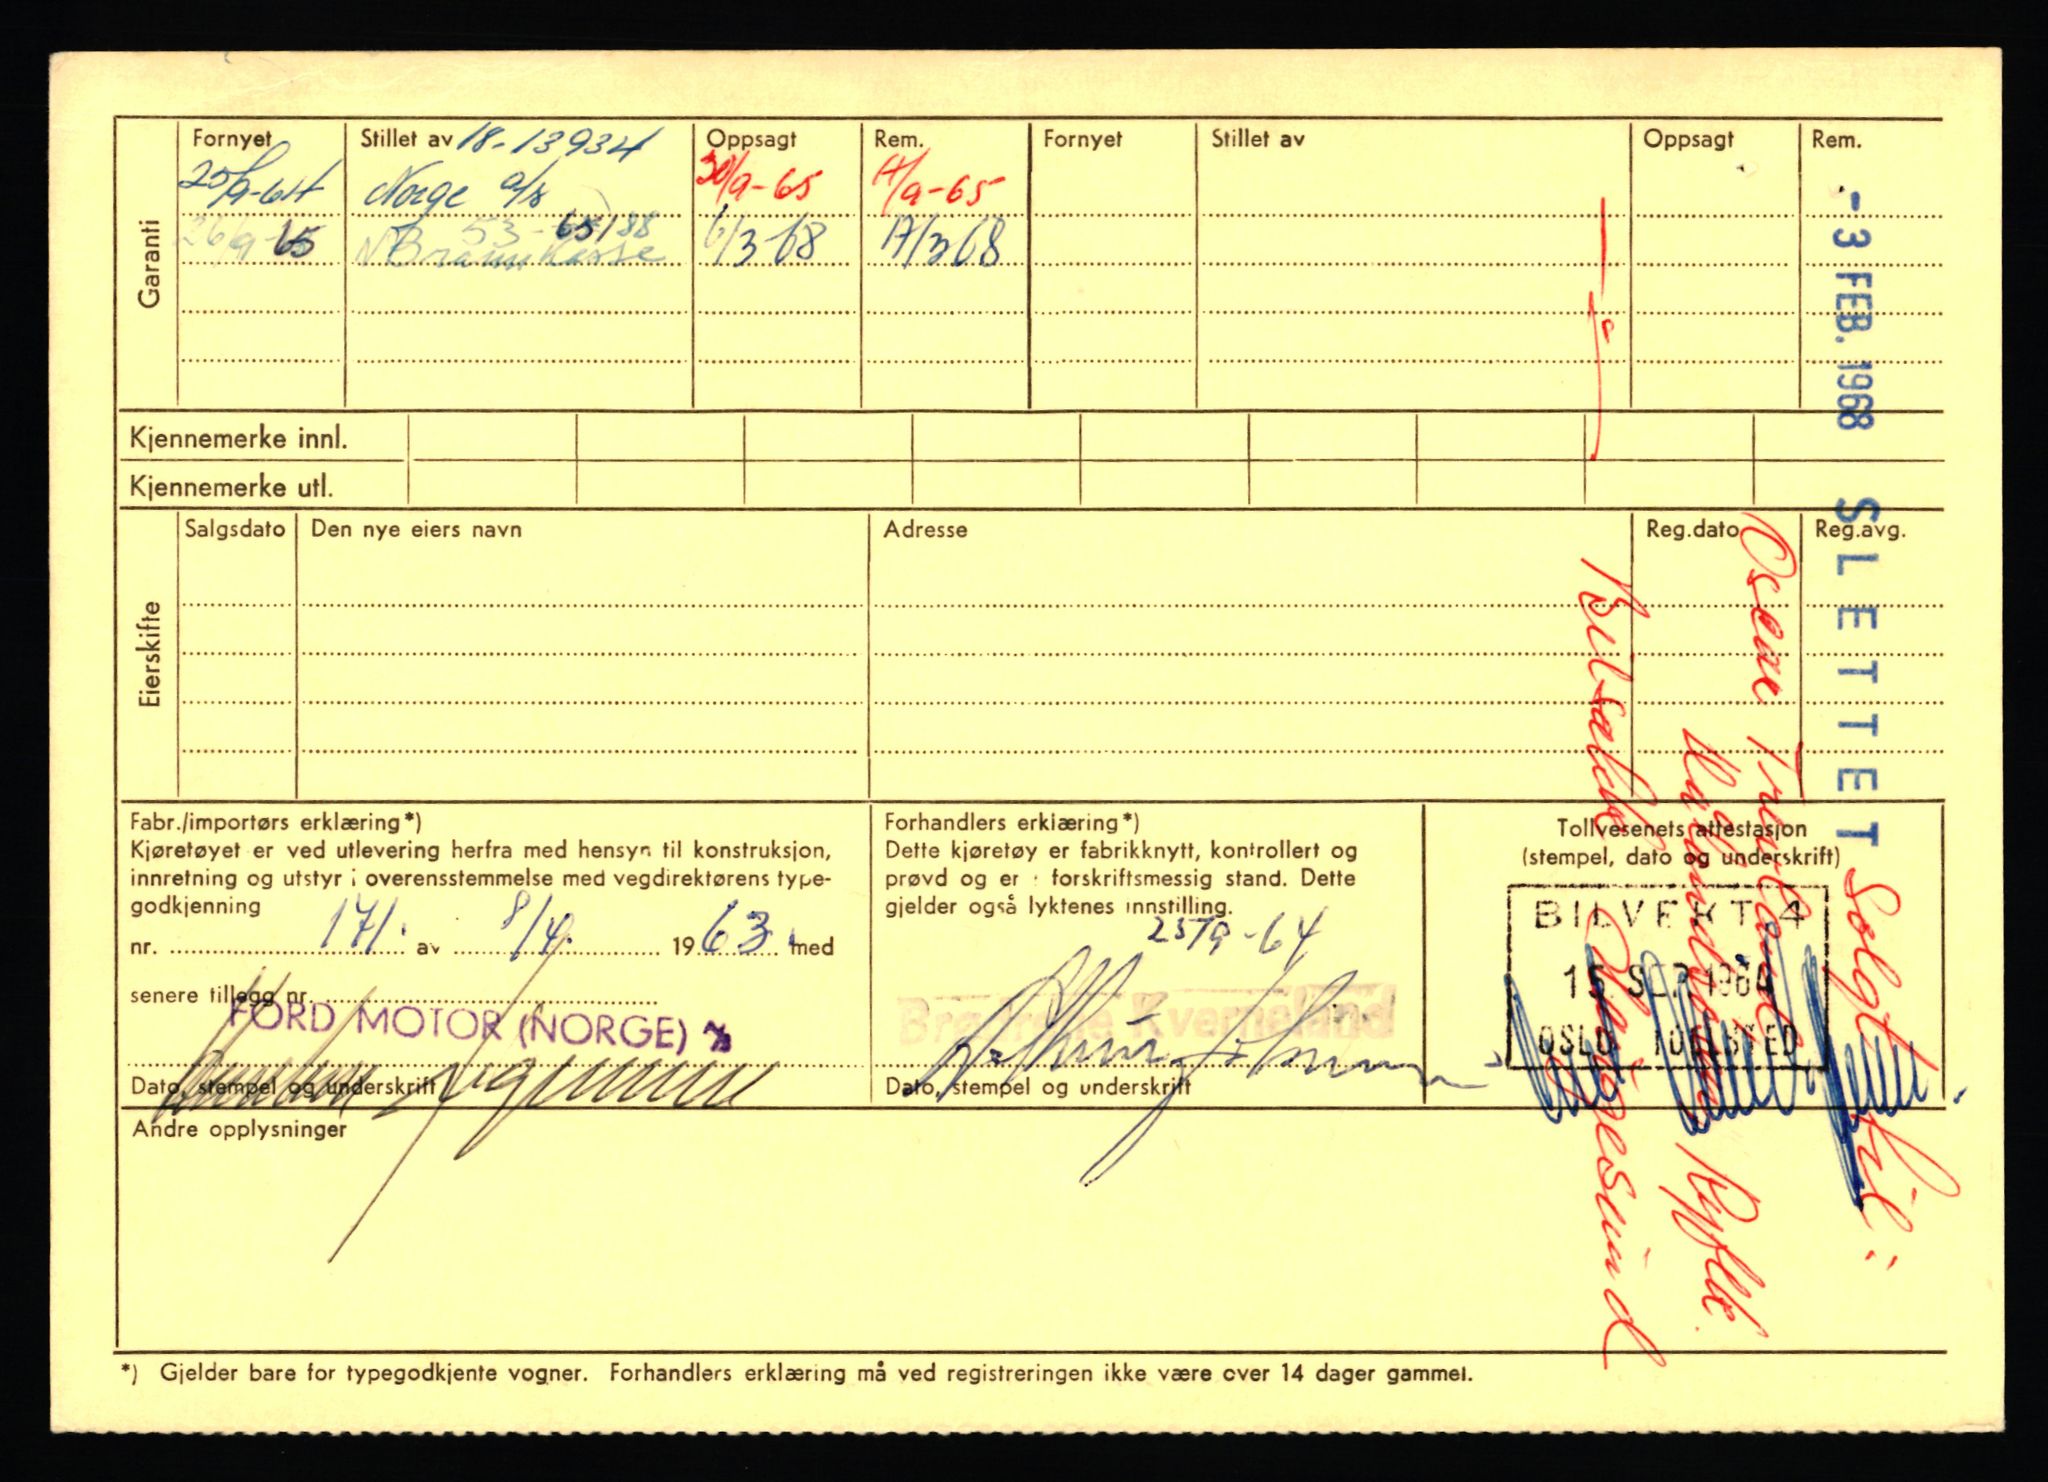 Garanti
Fornyet Stillet av 18-13934 Oppsagt Rem. Fornyet Stillet av Oppsagt Rem.
25/9-64 Norge a/s 30/9-65 14/9-65
53-65188
26/9-65 N Brannkasse 6/3-68 17/3 68
Kjennemerke innl.
Kjennemerke utl.
Eierskifte
Salgsdato Den nye eiers navn Adresse Reg.dato Reg.avg.
-3 FEB. 1968 SLETTET
Solgt til:
Oscar
Ryflk.
Bilsalg Haugesund
Fabr./importørs erklæring*)
Kjøretøyet er ved utlevering herfra med hensyn til konstruksjon,
innretning og utstyr i overensstemmelse med vegdirektørens type-
godkjenning
nr. 171. av 8/4. 1963. med
senere tillegg nr.
FORD MOTOR (NORGE) A/S
Dato, stempel og underskrift
Forhandlers erklæring*)
Dette kjøretøy er fabrikknytt, kontrollert og
prøvd og er i forskriftsmessig stand. Dette
gjelder også lyktenes innstilling.
25/9-64
Brødrene Kverneland
Dato, stempel og underskrift
Tollvesenets attestasjon
(stempel, dato og underskrift)
BILVEKT 4
15. SEP. 1964
OSLO TOLLSTED
Andre opplysninger
*) Gjelder bare for typegodkjente vogner. Forhandlers erklæring må ved registreringen ikke være over 14 dager gammel.